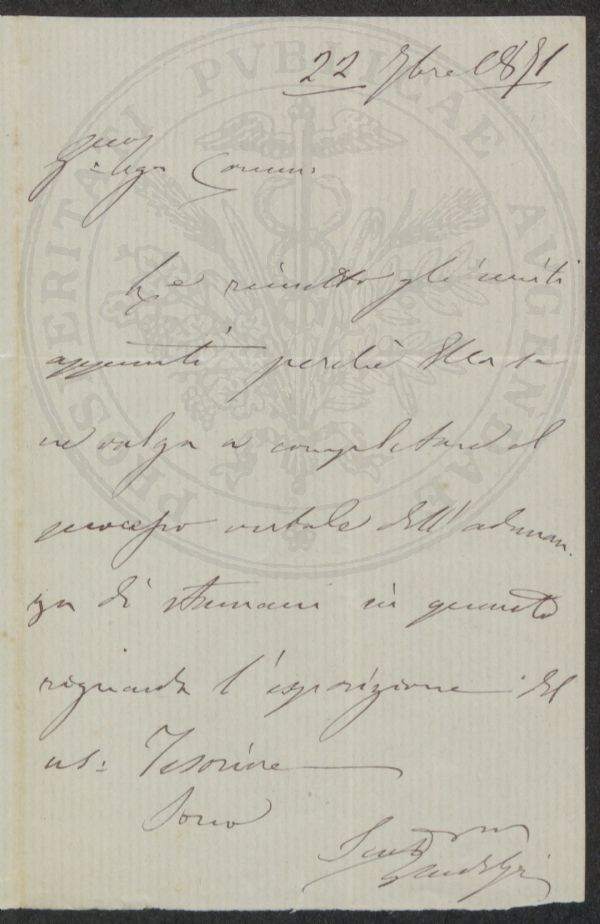 22 9bre 1871
Le rimetto gli uniti
appunti perchè Ella se
ne valga a completare il
processo verbale dell'adunan-
za di stamani in quanto
riguarda l'esposizione del
ns: Tesoriere
Sono
PROSPERITATI PVBLICAE AVGENDAE